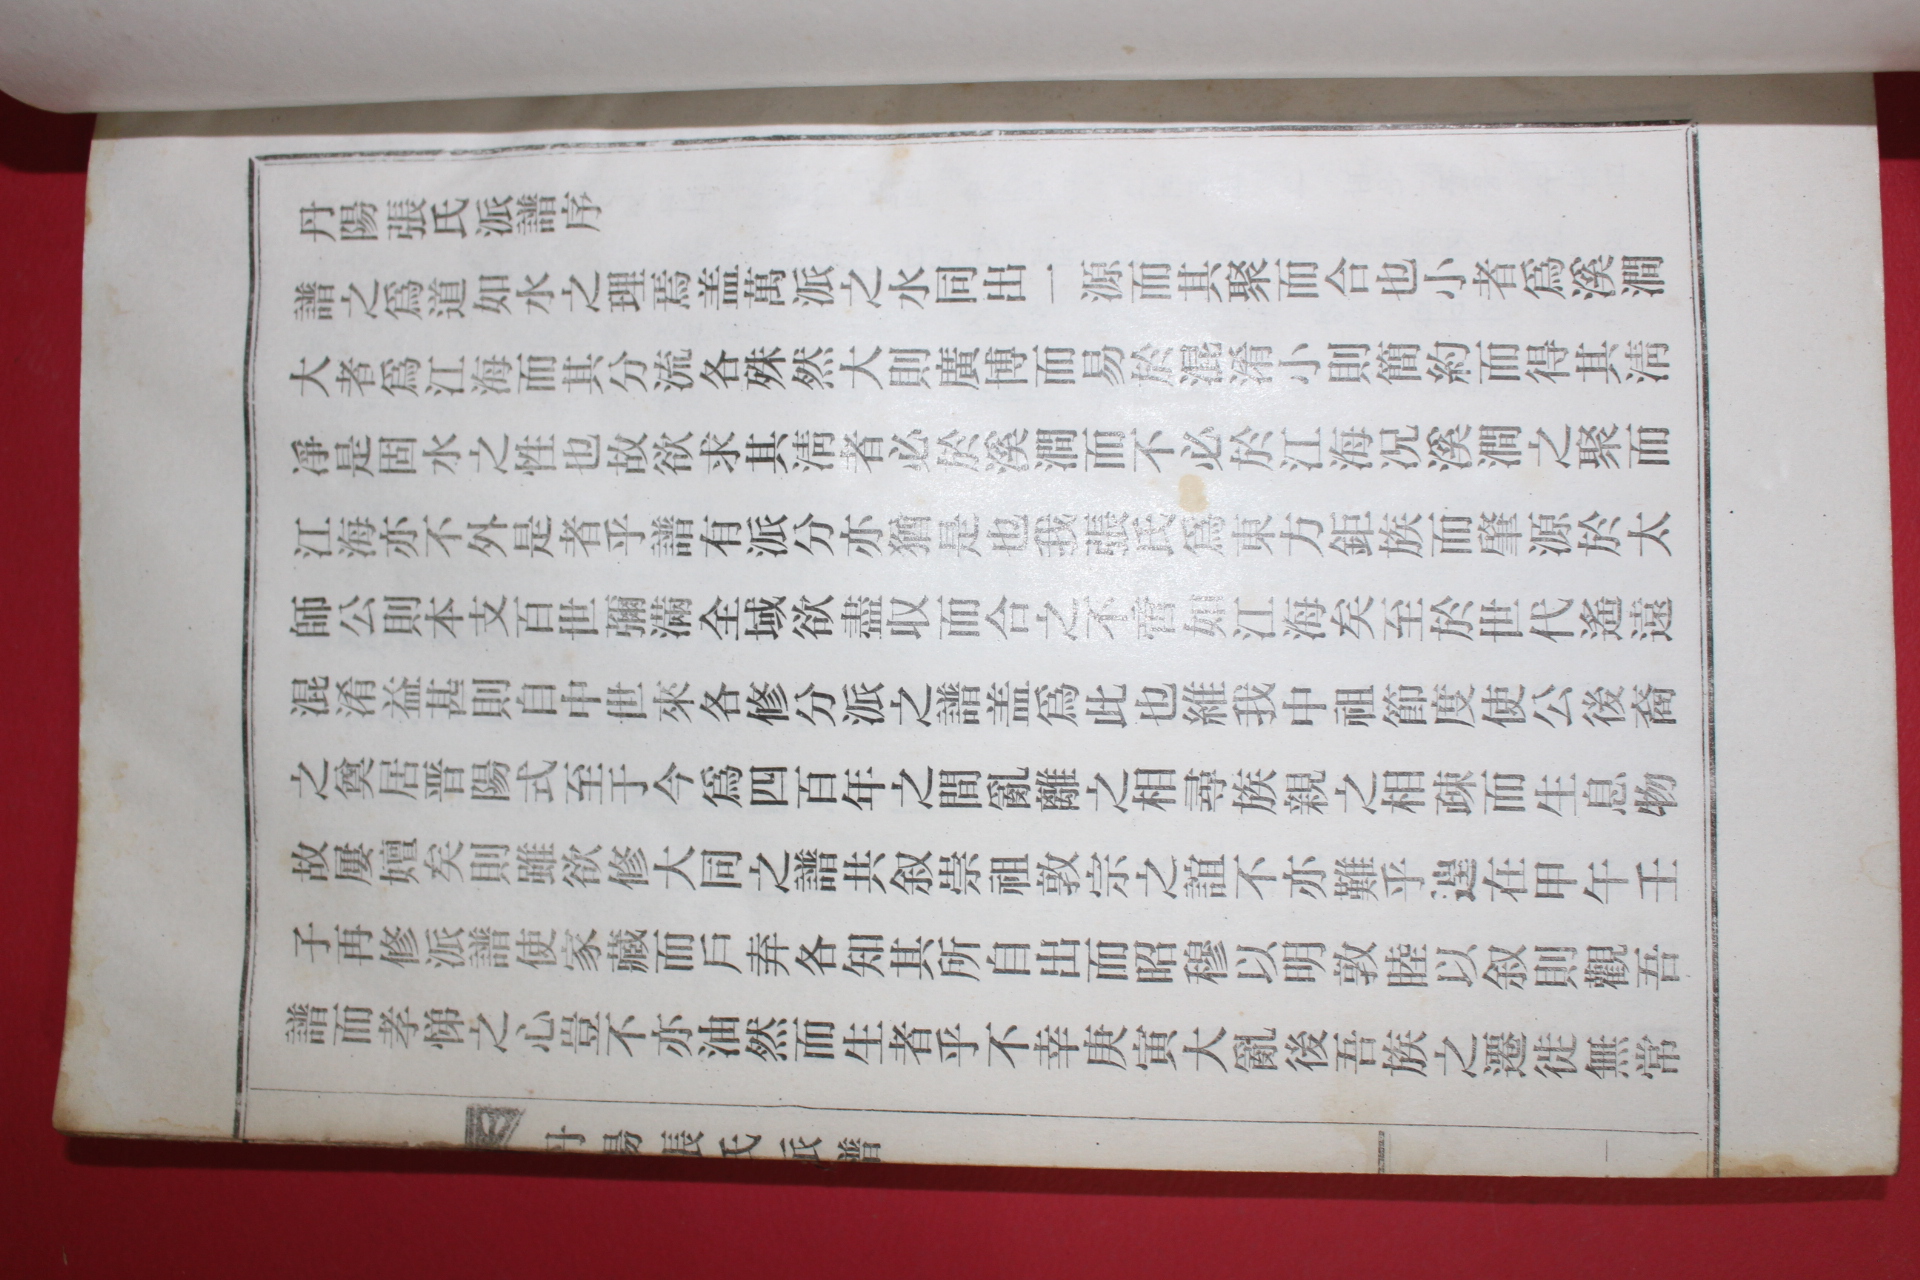 丹陽張氏派譜序
譜之爲道如水之理焉盖萬派之水同出一源而其聚而合也小者爲溪澗
大者爲江海而其分流各殊然大則廣博而易於混淆小則簡約而得其淸
凈是固水之性也故欲求其淸者必於溪澗而不必於江海况溪澗之聚而
江海亦不外是者乎譜有派分亦猶是也我張氏爲東方鉅族而肇源於太
師公則本支百世彌滿全域欲盡収而合之不啻如江海矣至於世代遙遠
混淆益甚則自中世來各修分派之譜盖爲此也維我中祖節度使公後裔
之奠居晋陽式至于今爲四百年之間亂離之相尋族親之相疎而生息物
故屢嬗矣則雖欲修大同之譜共叙崇祖敦宗之誼不亦難乎遑在甲午壬
子再修派譜使家藏而戶弆各知其所自出而昭穆以明敦睦以叙則觀吾
譜而孝悌之心豈不亦油然而生者乎不幸庚寅大亂後吾族之遷徙無常
丹陽張氏派譜
一